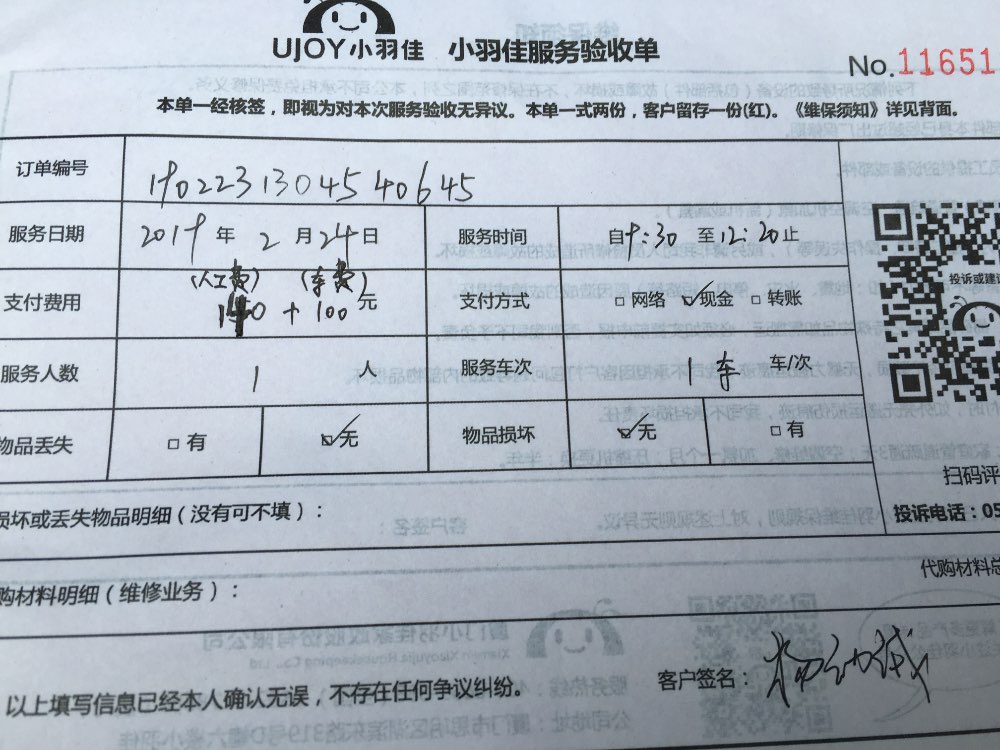 UJOY小羽佳 小羽佳服务验收单
No.11651
本单一经核签，即视为对本次服务验收无异议。本单一式两份，客户留存一份(红)。《维保须知》详见背面。
订单编号 190223130454 0645
服务日期 2019 年 2 月 24 日 服务时间 自9:30 至12:20止
(人工费) (车费)
支付费用 140 + 100 元 支付方式 □网络 ☑现金 □转账
服务人数 1 人 服务车次 1车 车/次
物品丢失 □有 ☑无 物品损坏 ☑无 □有
投诉或建议
扫码评
损坏或丢失物品明细（没有可不填）：
投诉电话：05
代购材料总
购材料明细（维修业务）：
以上填写信息已经本人确认无误，不存在任何争议纠纷。
客户签名：